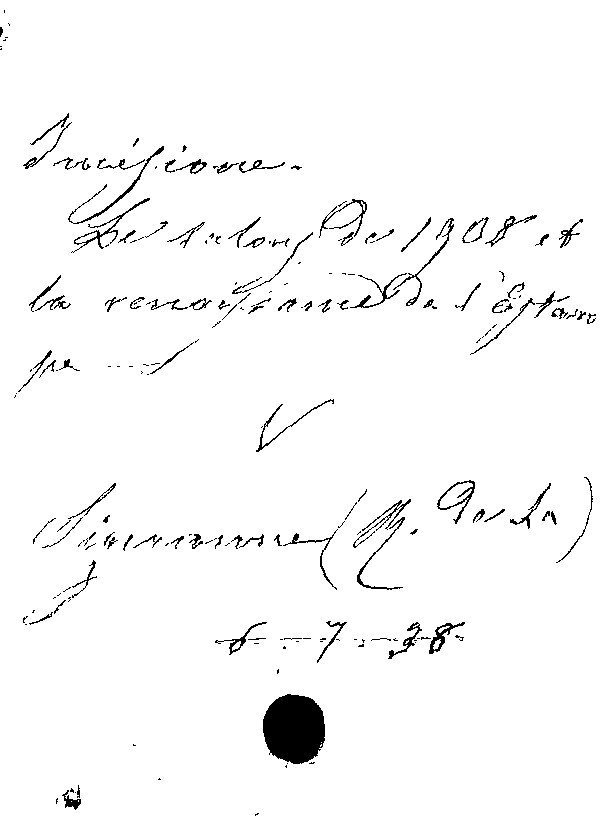 Incisione.
Le salons de 1908 et
la renaissance de l'Estam
pe
(M. de La)
6-7-38